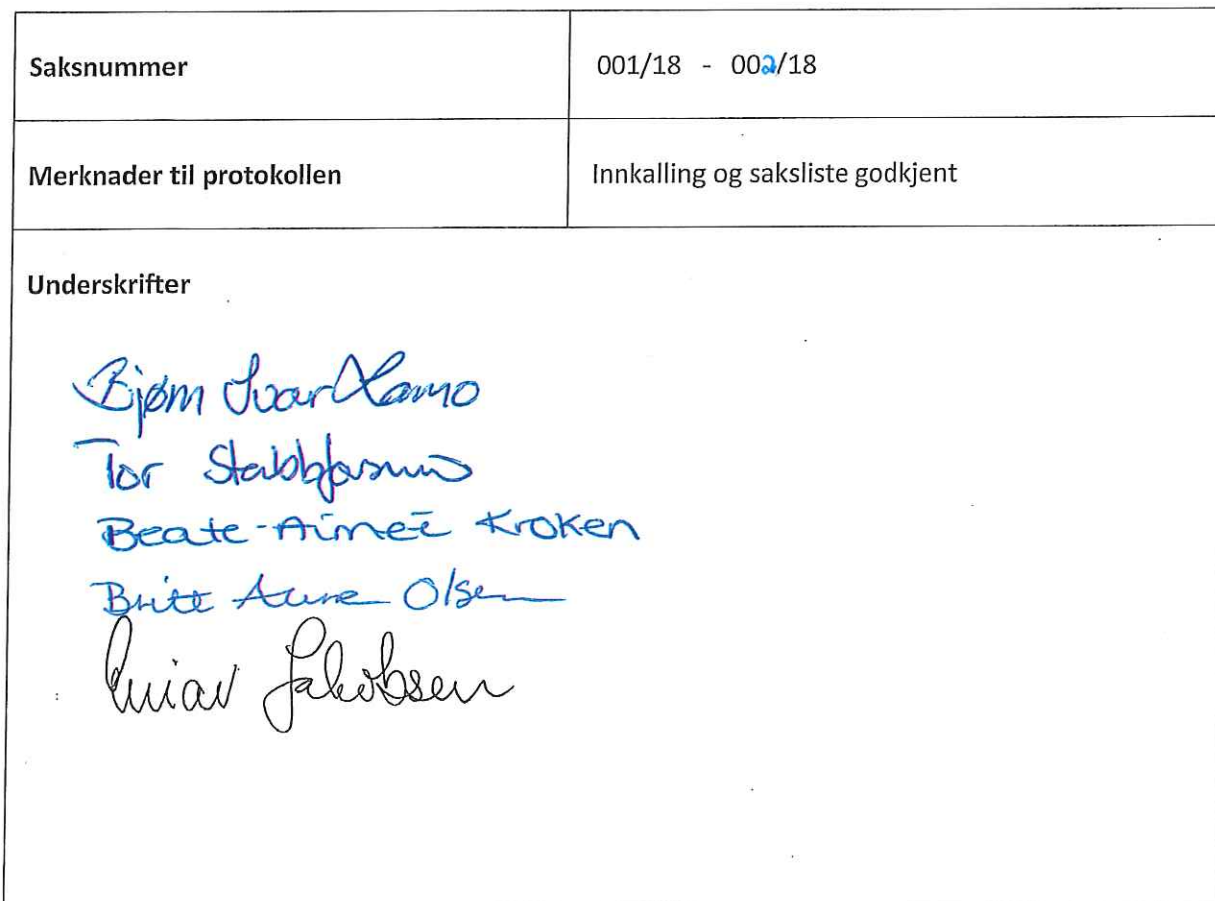 Saksnummer 001/18 - 002/18
Merknader til protokollen Innkalling og saksliste godkjent
Underskrifter
Bjørn Ivar Lamo
Tor
Beate-Aimeé Kroken
Britt Aune Olsen
Jakobsen